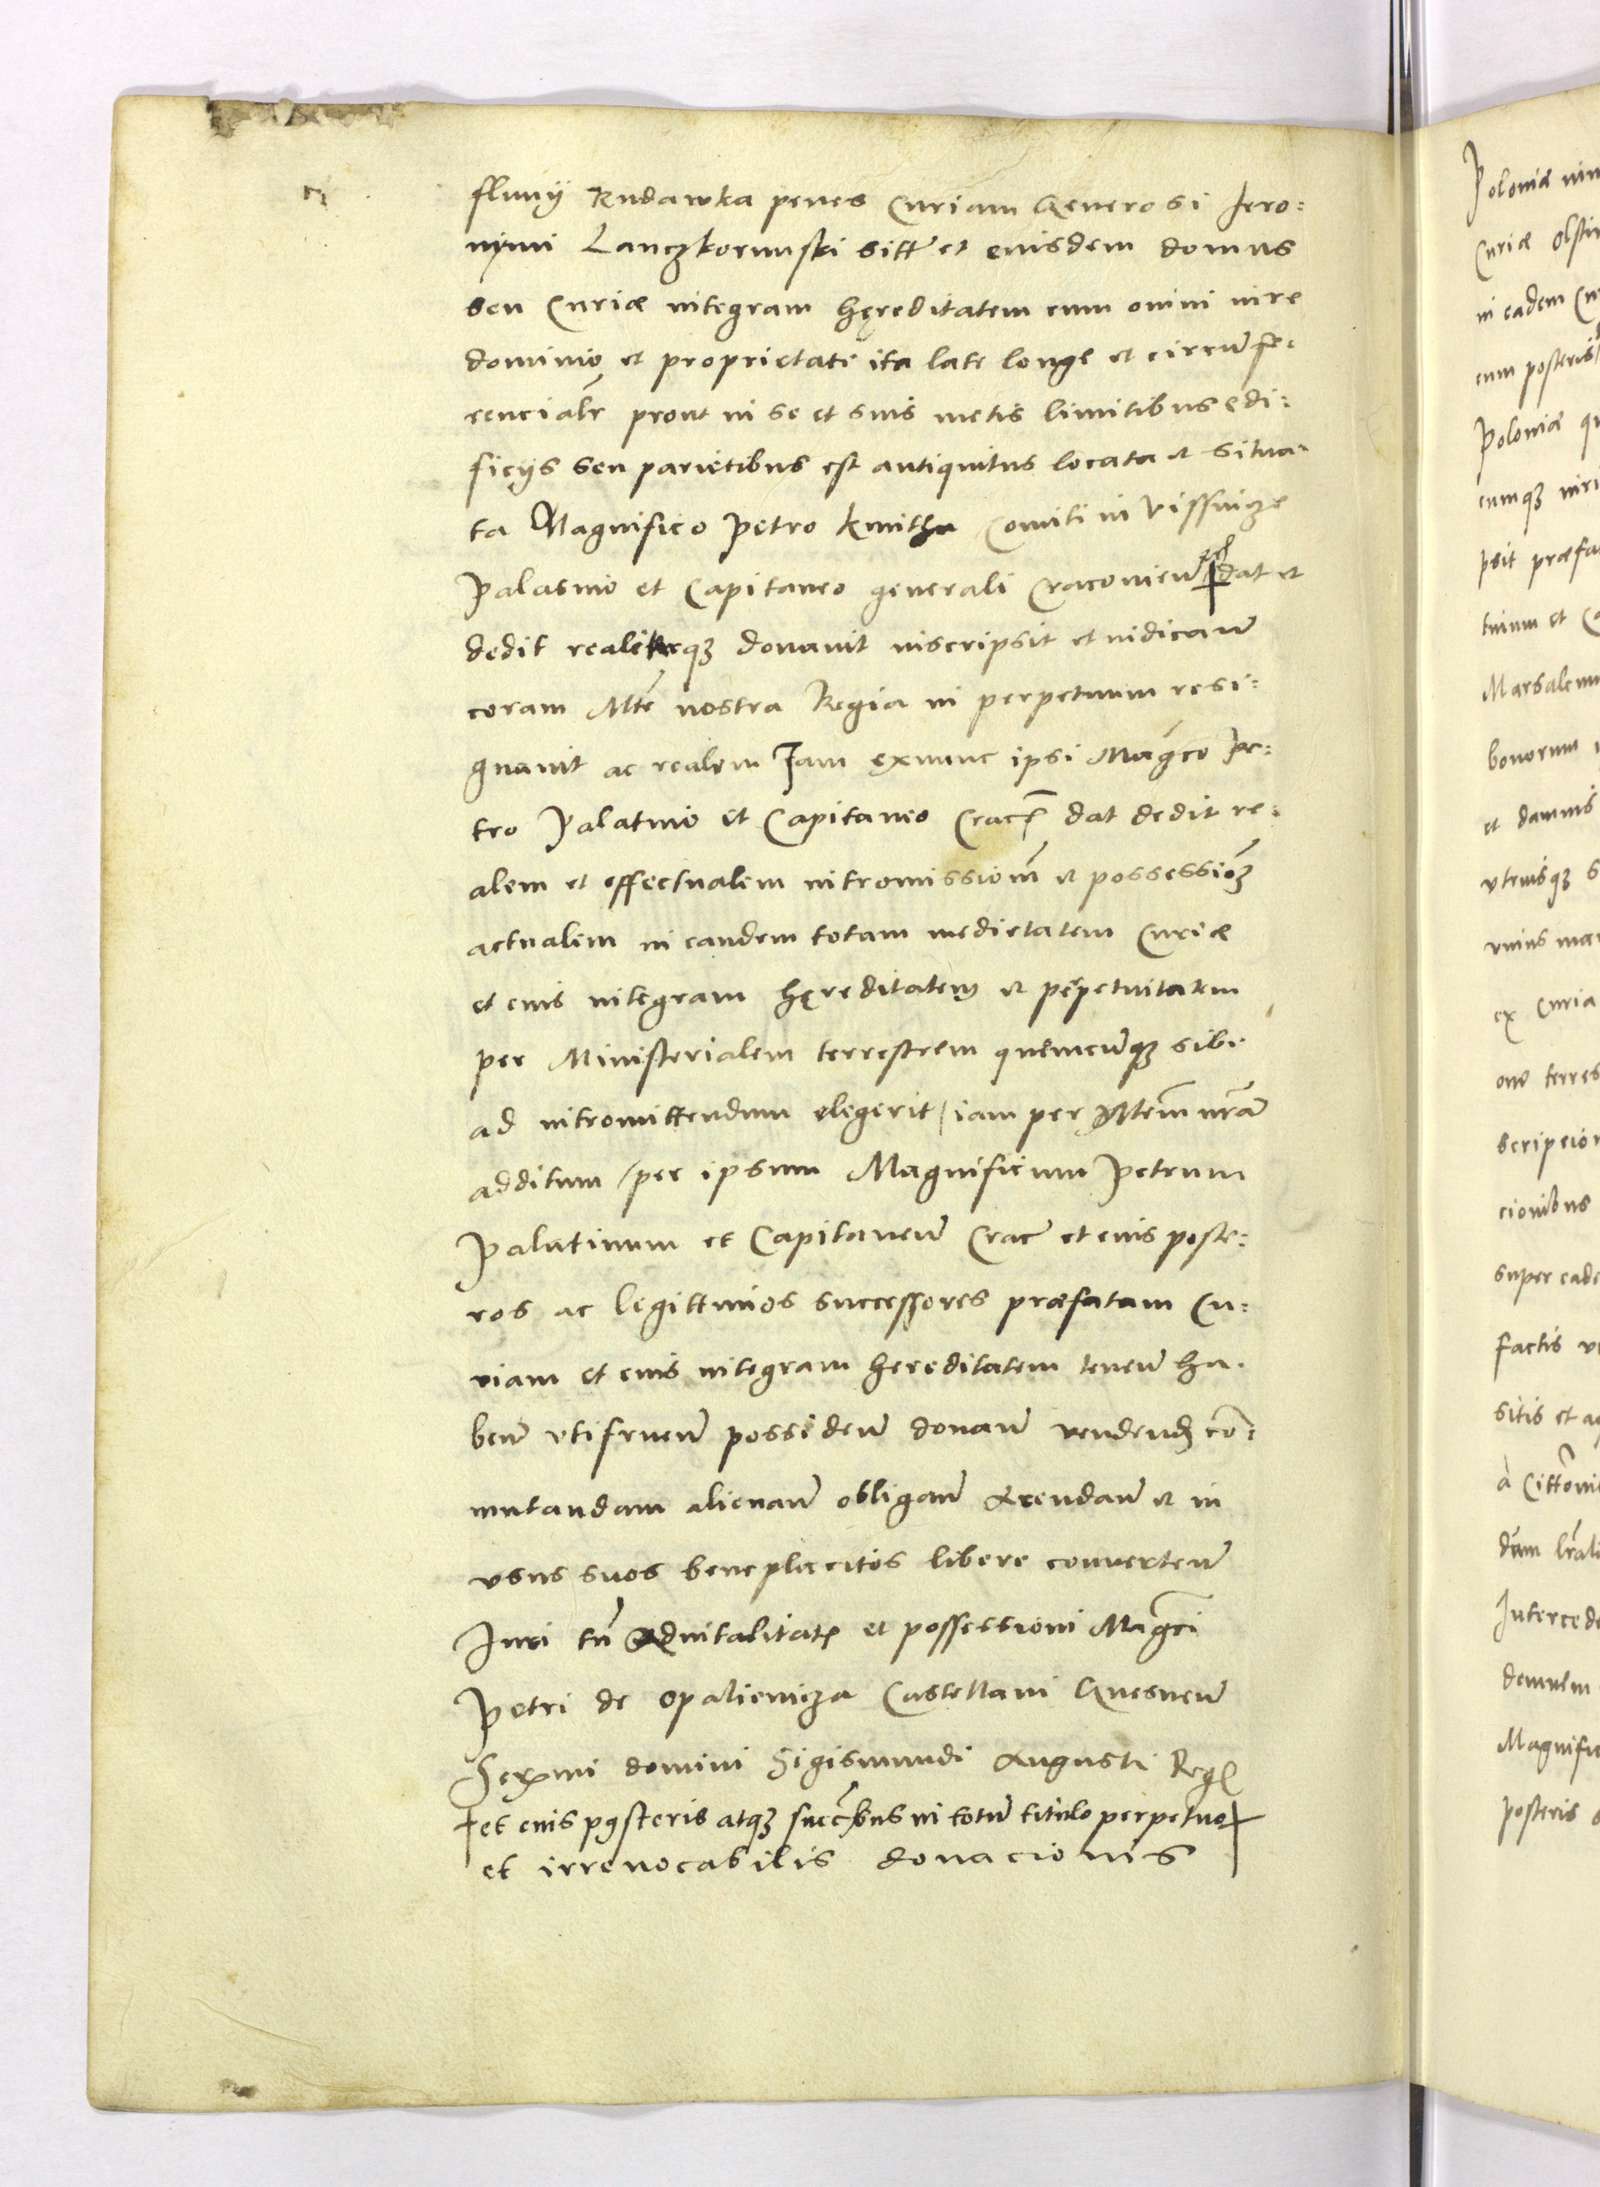 fluuij Rudawka penes Curiam Generosi Iero:
nymi Lanczkorunski sitt̃ et eiusdem domus
seu Curiæ integram hęreditatem cum omni iure
dominio et proprietate ita late longe et circũfe:
rencialr̃ prout in se et suis metis limitibus edi:
ficijs seu parietibus est antiquitus locata et situa:
ta Magnifico Petro Kmitha Comiti in Vissnicze
Palatino et Capitaneo generali Cracovieñ dat et
dedit realiterqȝ donavit inscripsit et iudicaur̃
coram Mte nostra Regia in perpetuum resi:
gnauit ac realem Iam exnunc ipsi Magc̃o Pe:
tro Palatino et Capitaneo Crac̃ dat dedit re:
alem et effectualem intromissionẽ et possessionẽ
actualem in eandem totam medietatem Curiæ
et eius integram hęreditatem et pẽpetuitatem
per Ministerialem terrestrem quemcũqȝ sibi
ad intromittendum elegerit / iam per Mtem nrãm
additum / per ipsum Magnificum Petrum
Palatinum et Capitaneũ Crac̃ et eius poste:
ros ac legittimos successores præfatam Cu:
riam et eius integram hereditatem teneñ ha:
beñ vtifrueñ possideñ donañ vendend̃ com̃:
mutandam alienañ obligañ Arendañ et in
vsus suos beneplacitos libere converteñ
Iuri tñ Aduitalitatis et possessioni Magc̃i
Petri de Opalienicza Castellani Gnesneñ
Serᵐⁱ domini Sigismundi Augusti Reg̃
+ et eius posteris atqȝ succ̃bus in totum titulo perpetuo +
et irrevocabilis donacionis
Poloniæ
Curiæ
in eadem
cum posteris
Poloniæ
psit
Marsalcum
bonorum
et damnis
ex Curia
terres
super
factis
sitis et
Intercede
Magnific
posteris